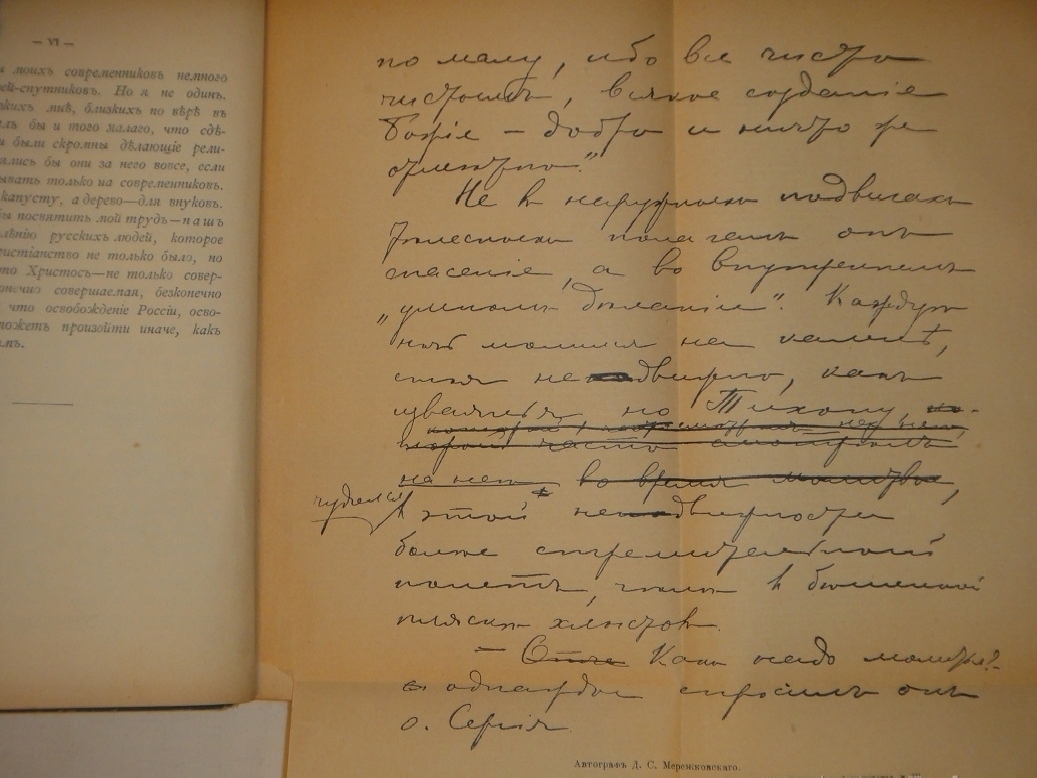 — VI —
моихъ современниковъ немного
ей-спутниковъ. Но я не одинъ.
кихъ мнѣ, близкихъ по вѣрѣ въ
лъ бы и того малаго, что сдѣ-
и были скромны дѣлающіе рели-
ялись бы они за него вовсе, если
ывать только на современниковъ.
капусту, а дерево—для внуковъ.
бы посвятить мой трудъ—нашъ
лѣнію русскихъ людей, которое
ристіанство не только было, но
то Христосъ—не только совер-
онечно совершаемая, безконечно
что освобожденіе Россіи, осво-
можетъ произойти иначе, какъ
мъ.
по малу, ибо все чисто
чистымъ, всякое созданіе
Божіе — добро и ничто же
"
Не въ наружныхъ подвигахъ
полагалъ онъ
спасеніе, а во внутреннемъ
„умномъ дѣланіи". Каждую
ночь молился на камнѣ,
стоя неподвижно, какъ
изваяніе, но Тихону,
который часто смотрѣлъ
на него во время молитвы,
чудился
въ этой неподвижности
болѣе стремительный
полетъ, чѣмъ въ бѣшеной
пляскѣ хлыстовъ.
— Отче Какъ надо молиться?
— однажды спросилъ онъ
о. Сергія.
Автографъ Д. С. Мережковскаго.